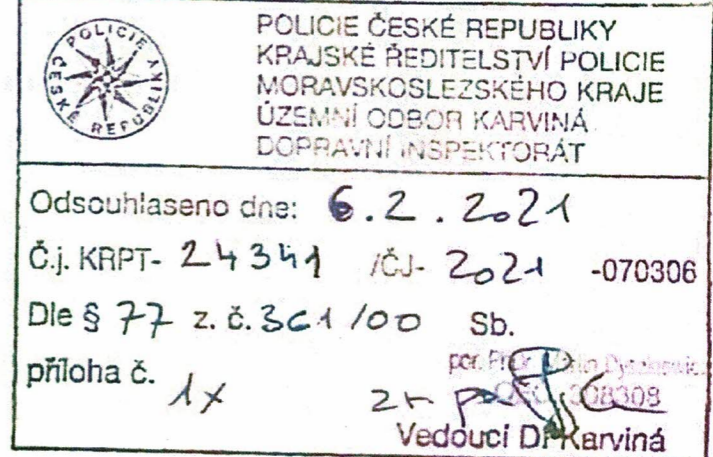 POLICIE ČESKÉ REPUBLIKY
POLICIE ČESKÉ REPUBLIKY
KRAJSKÉ ŘEDITELSTVÍ POLICIE
MORAVSKOSLEZSKÉHO KRAJE
ÚZEMNÍ ODBOR KARVINÁ
DOPRAVNÍ INSPEKTORÁT
Odsouhlaseno dne: 6.2.2021
Č.j. KRPT- 24341 /ČJ- 2021 -070306
Dle § 77 z. č. 361 /00 Sb.
příloha č. 1x
308308
Vedoucí DI Karviná